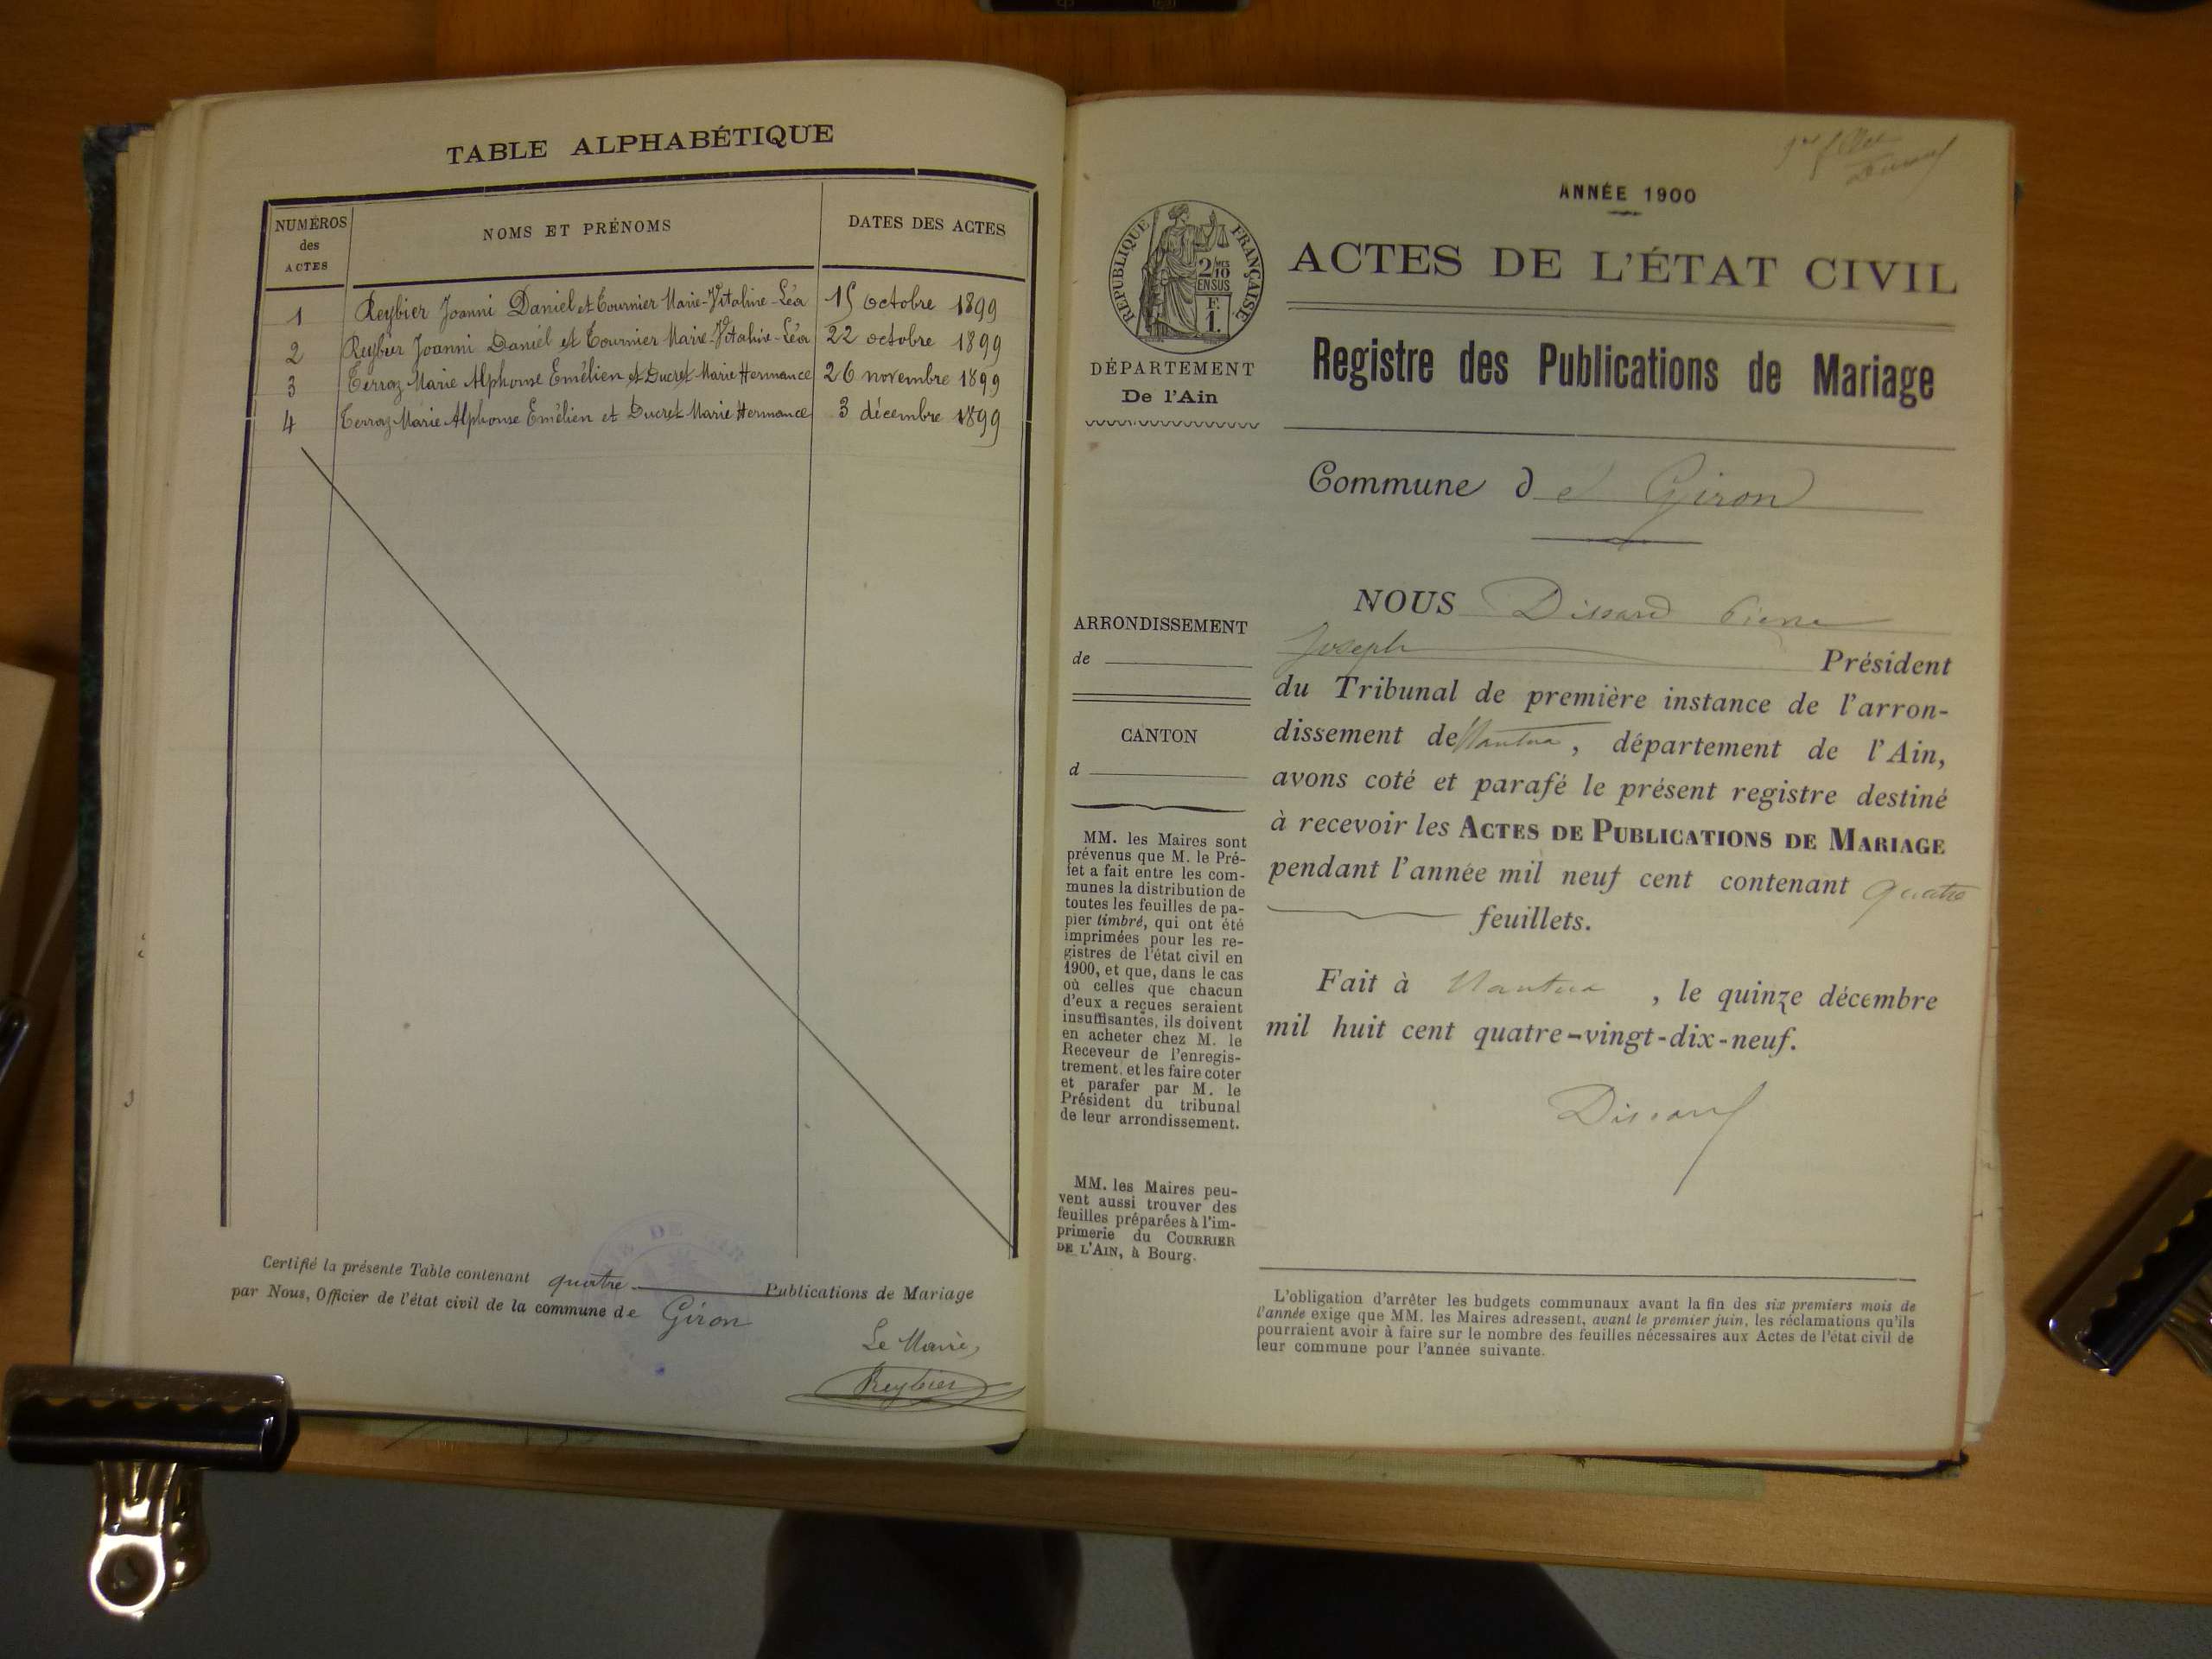 TABLE ALPHABÉTIQUE
NUMÉROS
des
ACTES
NOMS ET PRÉNOMS
DATES DES ACTES
1 Reybier Joanni Daniel et Tournier Marie-Vitaline-Léa 15 octobre 1899
2 Reybier Joanni Daniel et Tournier Marie-Vitaline-Léa 22 octobre 1899
3 Terroz Marie Alphonse Emélien et Ducret Marie Hermance 26 novembre 1899
4 Terroz Marie Alphonse Emélien et Ducret Marie Hermance 3 décembre 1899
Certifié la présente Table contenant quatre Publications de Mariage
par Nous, Officier de l'état civil de la commune de Giron
Le Maire,
Reybier
ANNÉE 1900
RÉPUBLIQUE FRANÇAISE
2/10
EN SUS
F.
1.
DÉPARTEMENT
De l'Ain
ACTES DE L'ÉTAT CIVIL
Registre des Publications de Mariage
Commune de Giron
ARRONDISSEMENT
de
CANTON
d
MM. les Maires sont
prévenus que M. le Pré-
fet a fait entre les com-
munes la distribution de
toutes les feuilles de pa-
pier timbré, qui ont été
imprimées pour les re-
gistres de l'état civil en
1900, et que, dans le cas
où celles que chacun
d'eux a reçues seraient
insuffisantes, ils doivent
en acheter chez M. le
Receveur de l'enregis-
trement, et les faire coter
et parafer par M. le
Président du tribunal
de leur arrondissement.
MM. les Maires peu-
vent aussi trouver des
feuilles préparées à l'im-
primerie du COURRIER
DE L'AIN, à Bourg.
NOUS Dissard Pierre
Joseph Président
du Tribunal de première instance de l'arron-
dissement de Nantua, département de l'Ain,
avons coté et parafé le présent registre destiné
à recevoir les ACTES DE PUBLICATIONS DE MARIAGE
pendant l'année mil neuf cent contenant quatre
feuillets.
Fait à Nantua, le quinze décembre
mil huit cent quatre-vingt-dix-neuf.
Dissard
L'obligation d'arrêter les budgets communaux avant la fin des six premiers mois de
l'année exige que MM. les Maires adressent, avant le premier juin, les réclamations qu'ils
pourraient avoir à faire sur le nombre des feuilles nécessaires aux Actes de l'état civil de
leur commune pour l'année suivante.